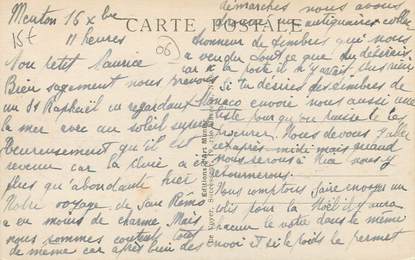 Menton 16 Xbre
11 heures
15f
CARTE POSTALE
(06)
Mon petit Maurice
Bien sagement nous prenons
un St Raphaël en regardant
la mer avec un soleil
heureusement qu'il est
revenu car la pluie a été
plus qu'abondante hier
Notre voyage de San Rémo
a eu moins de charme. Mais
nous sommes contents tout
de même car après bien des
démarches nous avons
un antiquaire
de timbres qui nous
a vendu tout ce que tu désirais
car à la poste il n'y avait plus rien
Si tu désires des timbres de
Monaco envoie nous aussi une
liste pour qu'on puisse te les
procurer. Nous devons
après-midi mais quand
nous serons à Nice nous y
retournerons.
Nous comptons faire envoyer un
colis pour la Noël il y aura
le votre dans le même
envoi et si le poids le permet